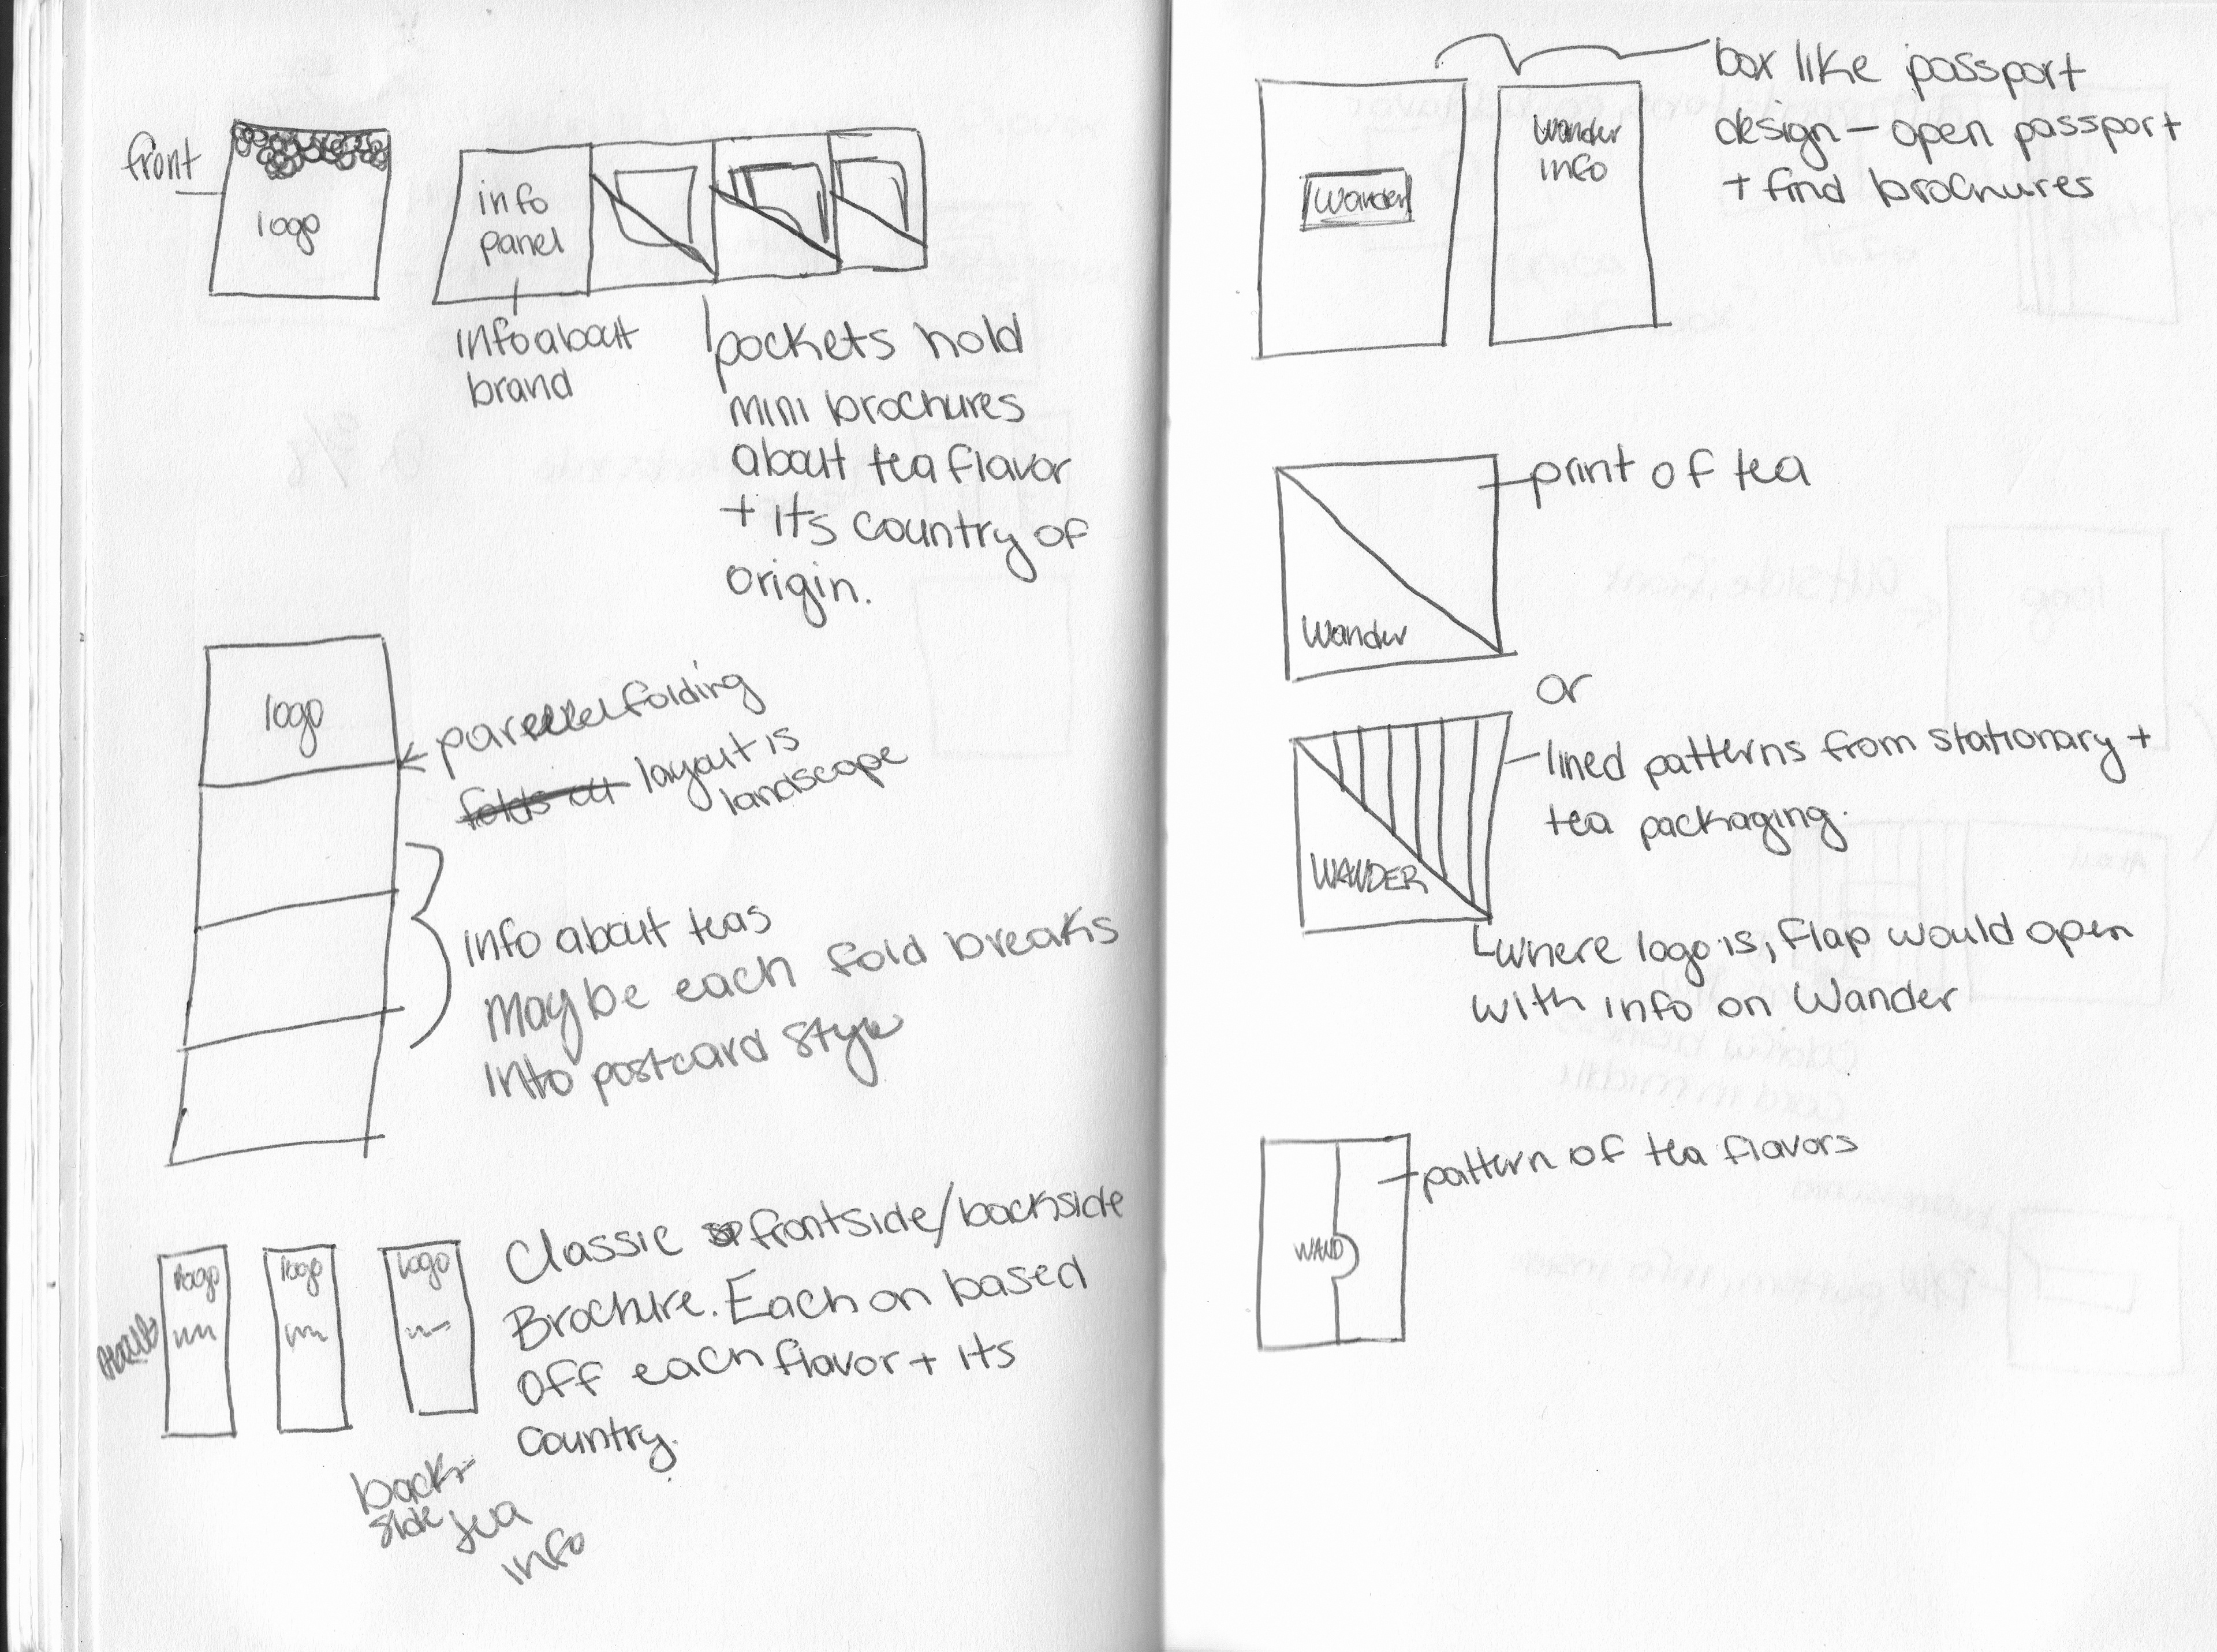 front
logo
info
panel
info about
brand
pockets hold
mini brochures
about tea flavor
+ its country of
origin.
logo
parallel folding
layout is
landscape
info about teas
Maybe each fold breaks
into postcard style
logo
logo
logo
Classic frontside/backside
Brochure. Each on based
off each flavor + its
country.
back-
side tea
info
box like passport
design — open passport
+ find brochures
Wander
Wander
info
print of tea
Wander
or
lined patterns from stationary +
tea packaging.
WANDER
where logo is, flap would open
with info on Wander
pattern of tea flavors
WAND